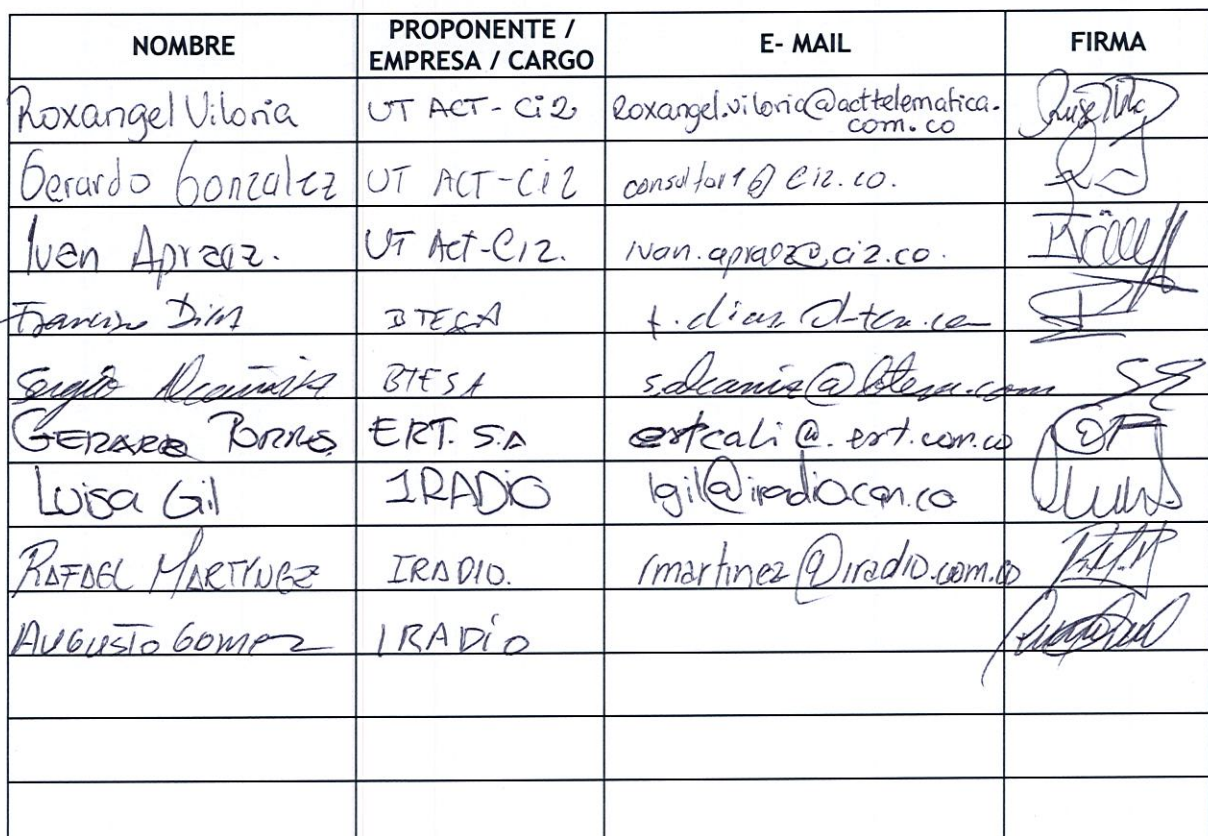 NOMBRE PROPONENTE / EMPRESA / CARGO E- MAIL FIRMA
Roxangel Viloria UT ACT - Ci2 Roxangel.viloria@acttelematica.
com.co
Gerardo Gonzalez UT ACT-Ci2 consultor1@ci2.co.
Ivan Apraez. UT Act-Ci2. ivan.apraez@ci2.co.
BTESA
Sergio BTESA
GERARDO PORRAS ERT. S.A ertcali@.ert.com.co
Luisa Gil IRADIO lgil@iradio.com.co
RAFAEL MARTINEZ IRADIO. rmartinez@iradio.com.co
AUGUSTO GOMEZ IRADIO